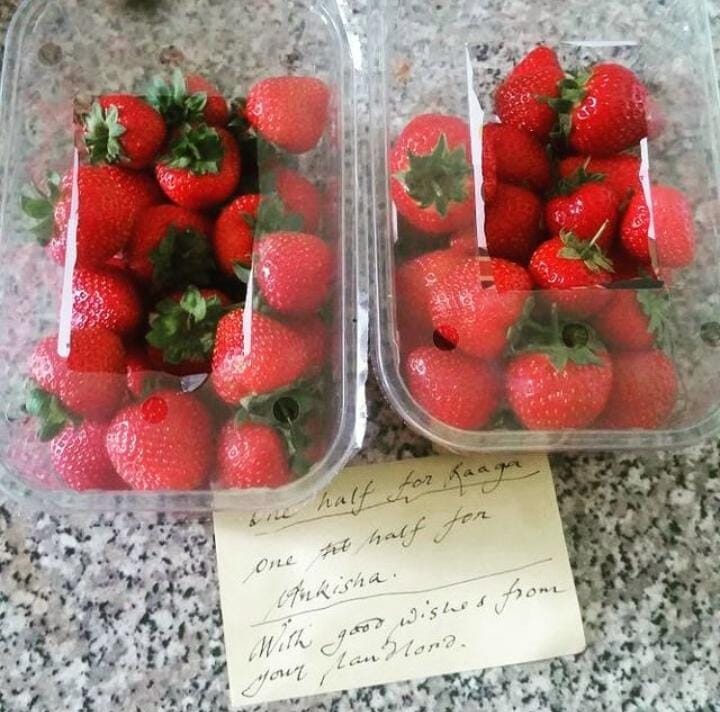 one half for Kaaga
one half for
Ankisha.
With good wishes from
your landlord.